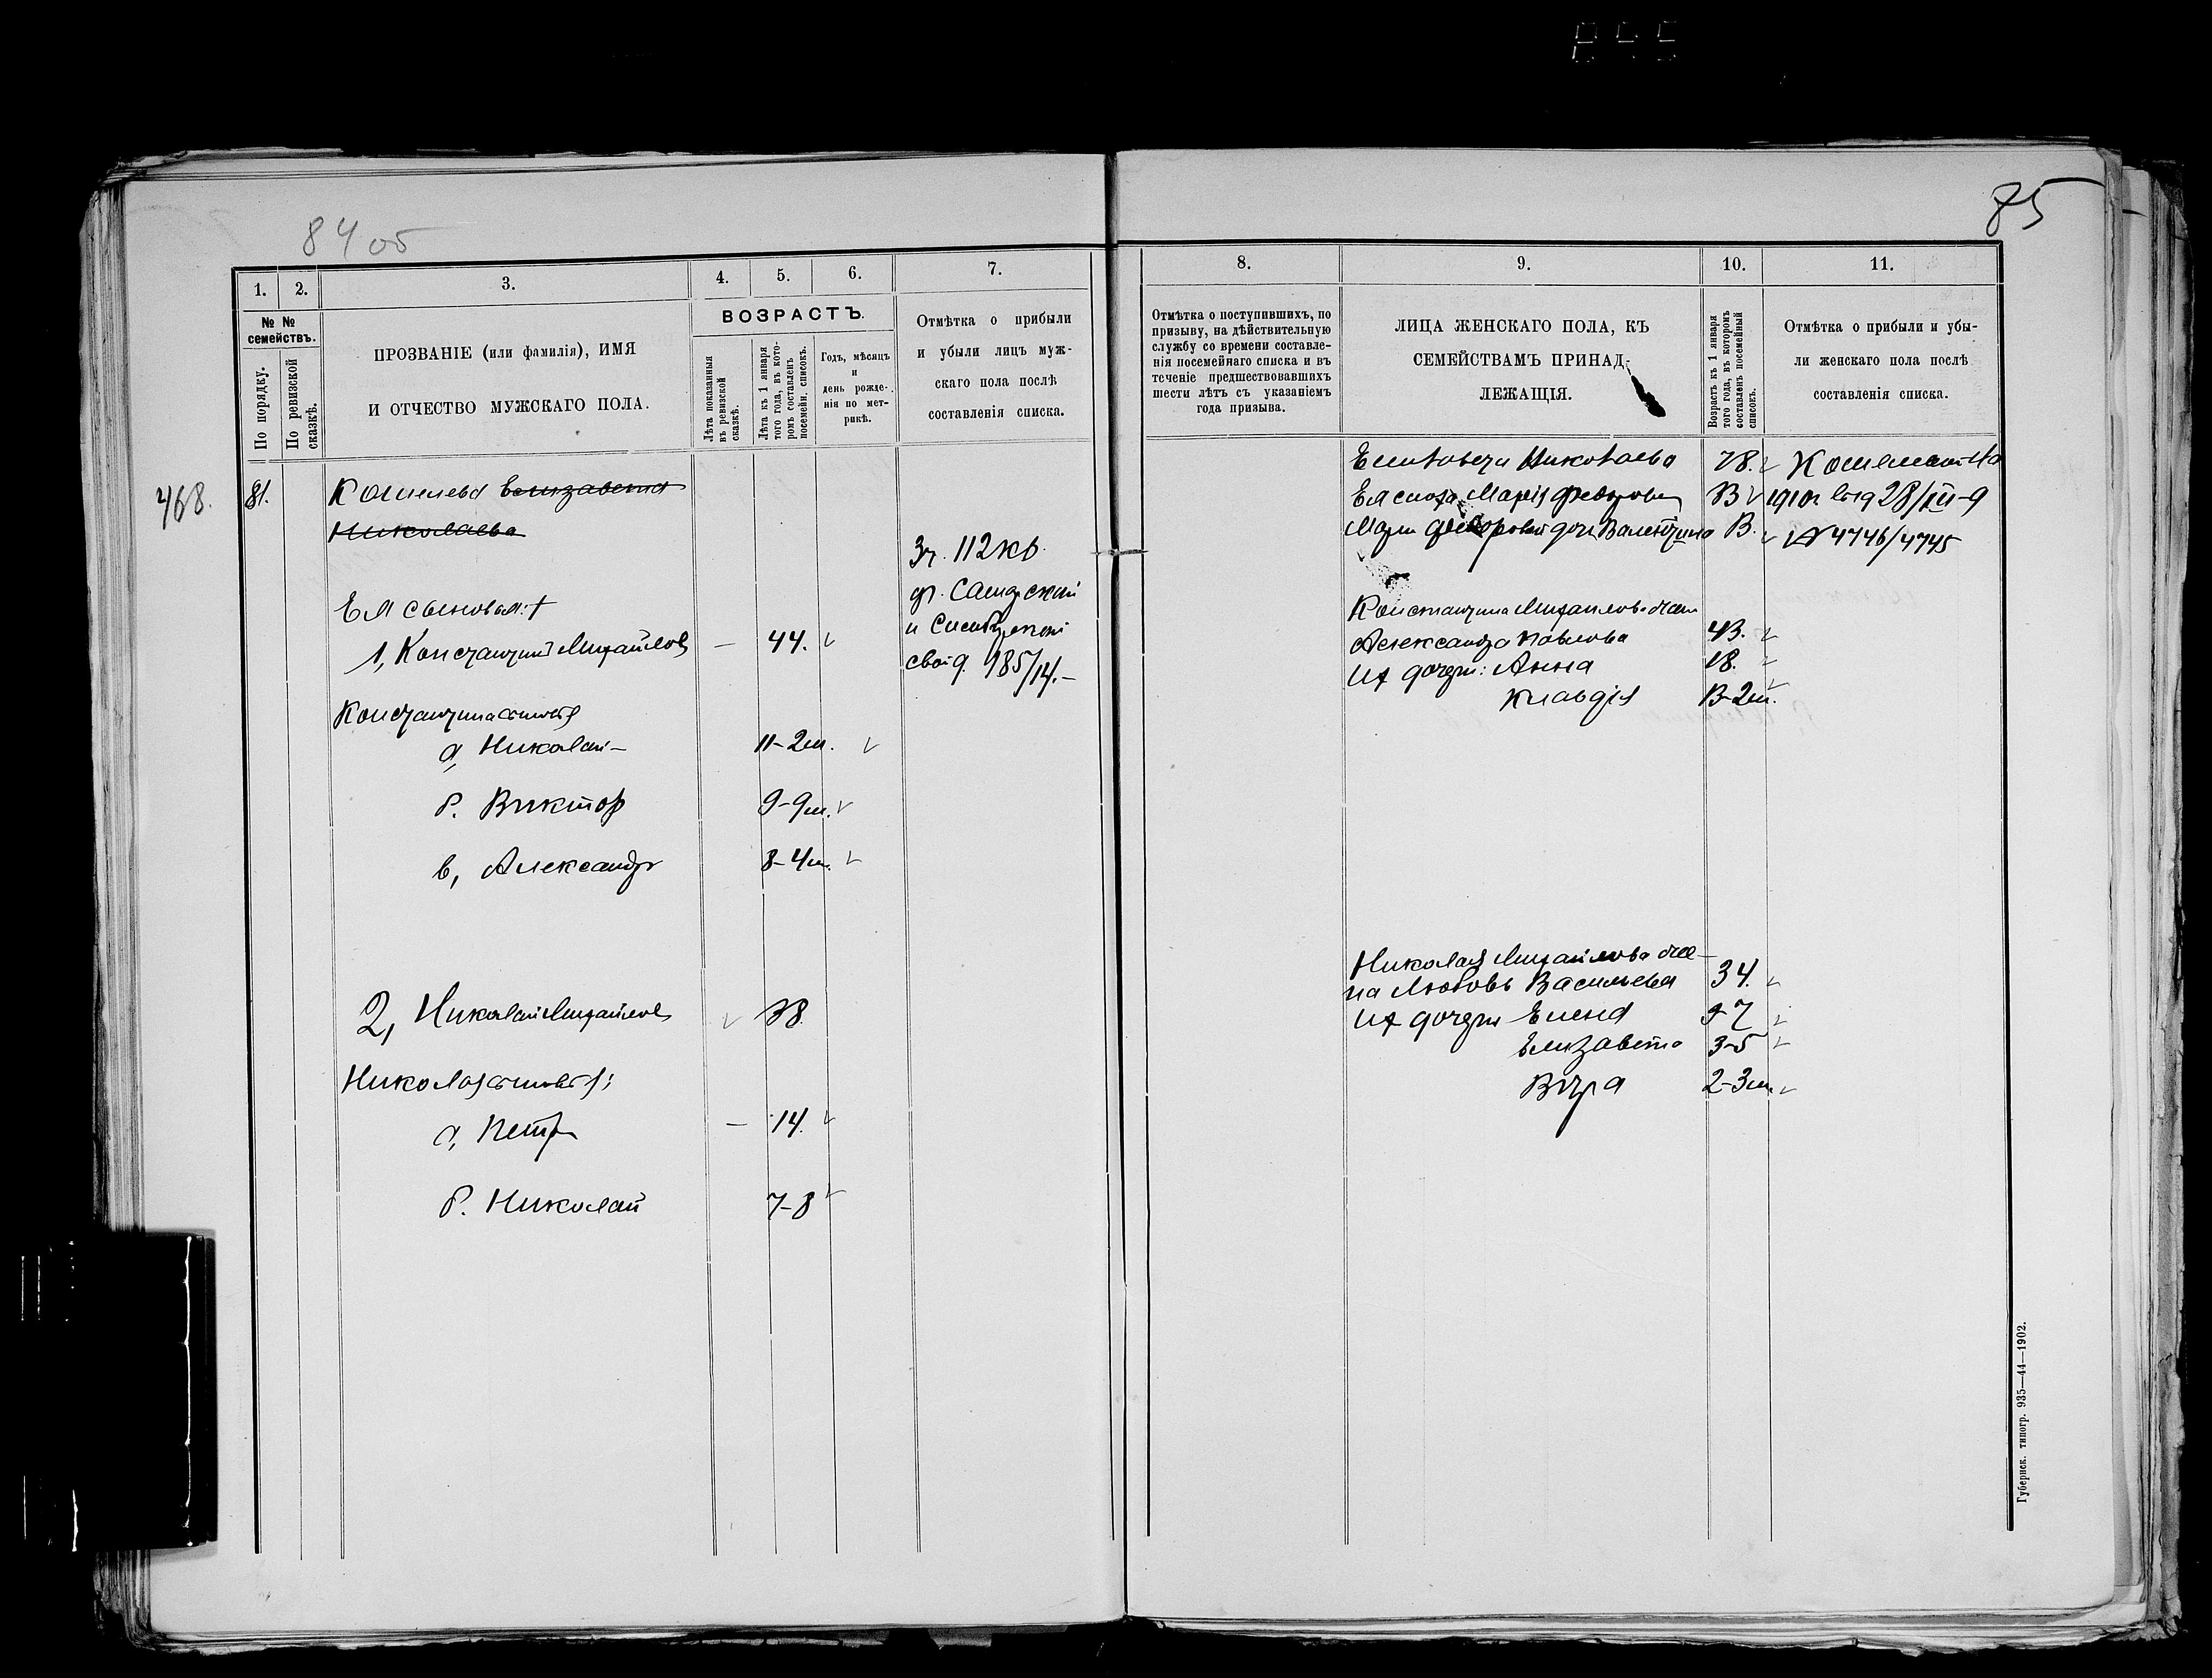 84 об
85
1.
2.
3.
4.
5.
6.
7.
№ №
семействъ.
По порядку.
По ревизской
сказкѣ.
ПРОЗВАНІЕ (или фамилія), ИМЯ
И ОТЧЕСТВО МУЖСКАГО ПОЛА.
ВОЗРАСТЪ.
Лѣта показанныя
въ ревизской
сказкѣ.
Лѣта къ 1 января
того года, въ кото-
ромъ составленъ
посемейн. списокъ.
Годъ, мѣсяцъ
и
день рожде-
нія по мет-
рикѣ.
Отмѣтка о прибыли
и убыли лицъ муж-
скаго пола послѣ
составленія списка.
468.
81.
Кошелева Елизавета
Николаева
Ея сыновья:
1, Константинъ Михайловъ
—
44.
Зч. 112 кв.
и
свид. 185/14.-
Константина сыновья
а, Николай -
11-2м.
б. Викторъ
9-9м.
в, Александръ
8-4м.
2, Николай Михайловъ
38.
Николая сыновья:
а, Петръ
—
14.
б. Николай
7-8
8.
9.
10.
11.
Отмѣтка о поступившихъ, по
призыву, на дѣйствительную
службу со времени составле-
нія посемейнаго списка и въ
теченіе предшествовавшихъ
шести лѣтъ съ указаніемъ
года призыва.
ЛИЦА ЖЕНСКАГО ПОЛА, КЪ
СЕМЕЙСТВАМЪ ПРИНАД-
ЛЕЖАЩІЯ.
Возрастъ къ 1 января
того года, въ которомъ
составленъ посемейный
списокъ.
Отмѣтка о прибыли и убы-
ли женскаго пола послѣ
составленія списка.
Елизавета Николаева
78.
Ея сноха Марія Федорова
В
1910г. 28/III-9
Маріи Федоровой дочь Валентина
В.
№ 4746/4745
Константина Михайлова жена
Александра Павлова
43.
Их дочери: Анна
18.
Клавдія
13-2м.
Николая Михайлова же-
на Любовь Васильева
34.
Их дочери Елена
9-7
Елизавета
3-5
Вѣра
2-3м.
Губернск. типогр. 935—44—1902.